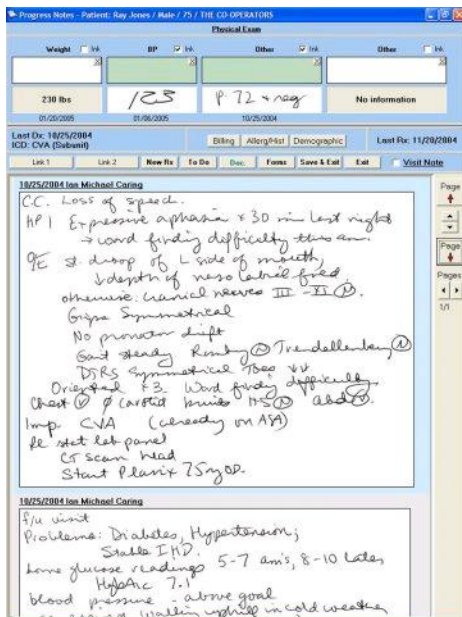 Progress Notes - Patient: Ray Jones / Male / 75 / THE CO-OPERATORS
Physical Exam
Weight Ink BP Ink Other Ink Other Ink
230 lbs P. 72 + reg No information
01/20/2005 01/06/2005 10/25/2004
Last Dx: 10/25/2004 Last Rx: 11/20/2004
ICD: CVA (Subunit) Billing Allerg/Hist Demographic
Link 1 Link 2 New Rx To Do Doc. Forms Save & Exit Exit Visit Note
10/25/2004 Ian Michael Caring
C.C. Loss of speech.
HPI Expressive aphasia x 30 min last night
→ word finding difficulty this am.
O/E sl. droop of L side of mouth,
↓ depth of naso labial
otherwise cranial nerves III - XI N
Grips Symmetrical
No pronator drift
Gait steady Romberg N Trendellenberg N
DTRS Symmetrical Toes ↓↓
Oriented x3. Word finding difficulty
Chest ∅ carotid bruits HS N abd N
Imp. CVA (already on ASA)
stat lab panel
CT scan head
Start Plavix 75mg OD.
Page
Page
Pages
1/1
10/25/2004 Ian Michael Caring
f/u visit
Problems: Diabetes, Hypertension,
Stable IHD.
home glucose readings 5-7 am's, 8-10 later
HgbA1c 7.1
blood pressure - above goal
walking uphill in cold weather